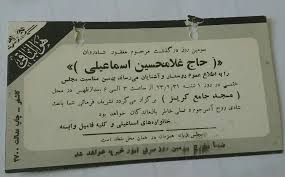 سومین روز درگذشت مرحوم مغفور شادروان
«( حاج غلامحسین اسماعیلی )»
را به اطلاع عموم دوستان و آشنایان می‌رساند، بهمین مناسبت مجلس
ختمی در روز ۱ شنبه ۱۳/۲/۳۱ از ساعت ۳ الی ۵ بعدازظهر در محل
( مسجد جامع کریز ) برگزار می‌گردد تشریف فرمائی شما باعث
شادی روح آنمرحوم و تسلی خاطر بازماندگان خواهد بود.
خانواده‌های اسماعیلی و کلیه فامیل وابسته
مجلس زنانه همزمان در همان محل
کاشمر - چاپ
۲۷۰۰